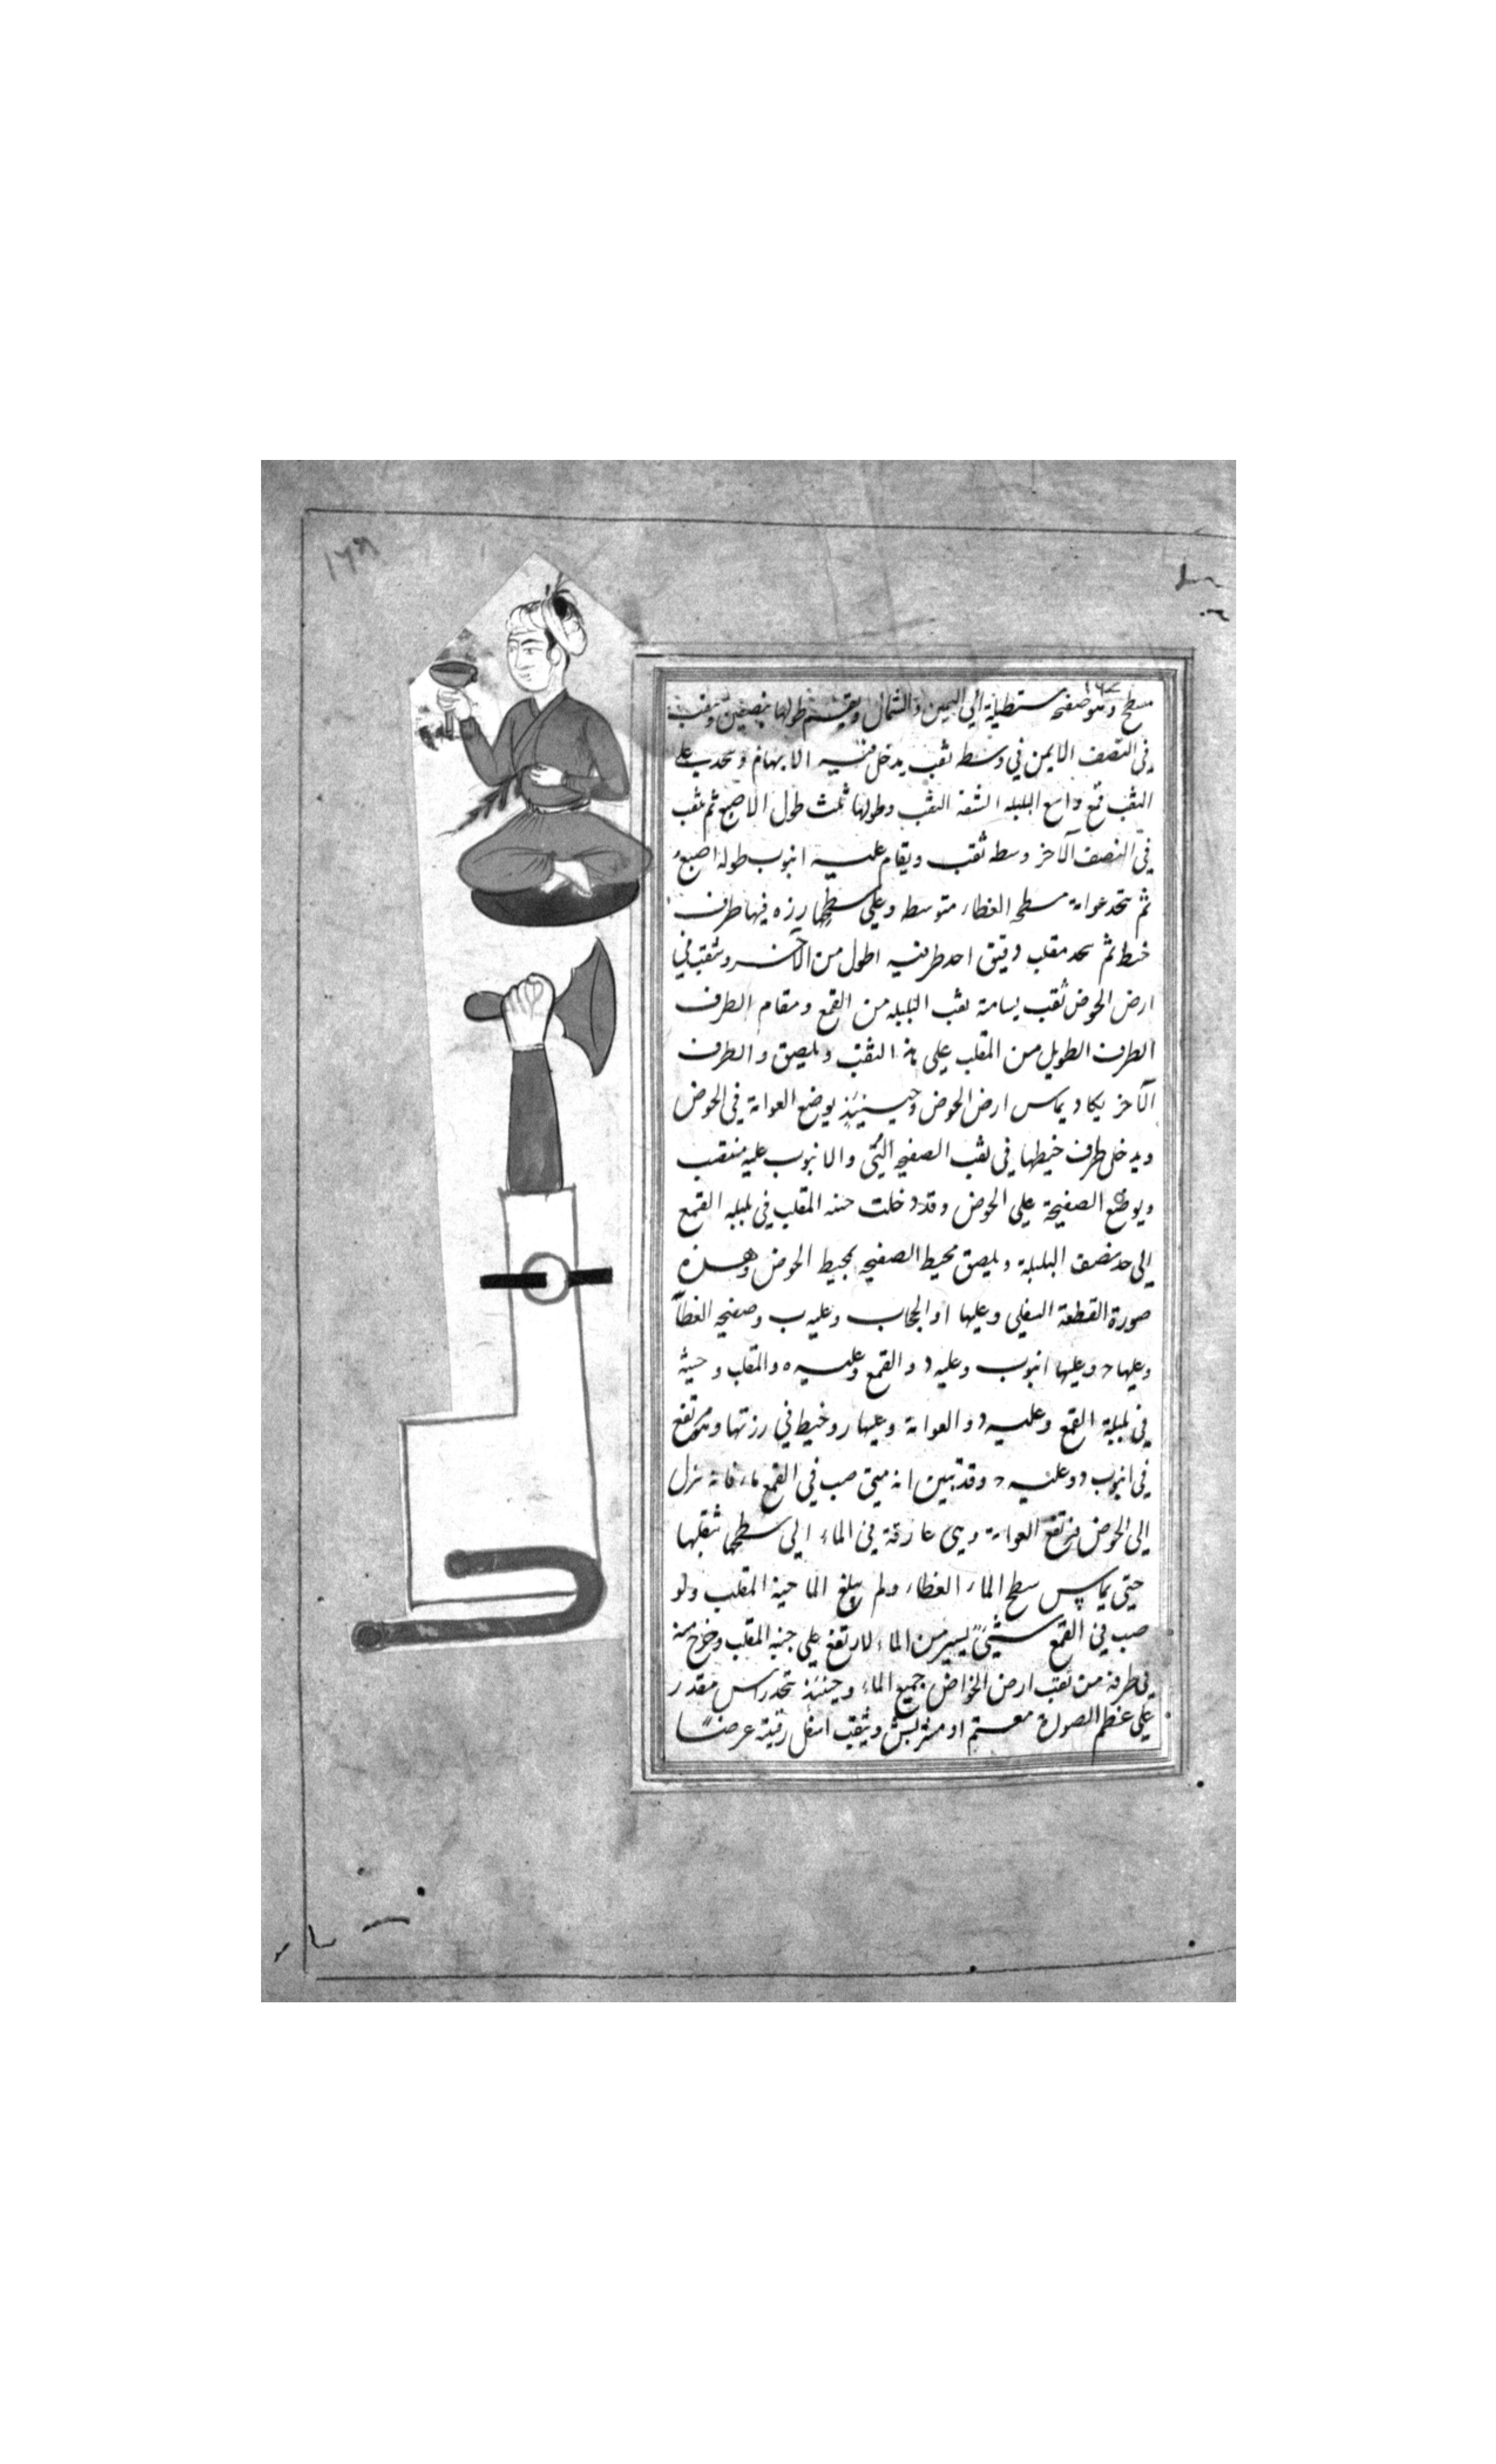 سطح وهو صفيحه مستطيلة الي اليمين والشمال ويقسم طولها بنصفين ويثقب
في النصف الايمن في وسطه ثقب يدخل فيه الابهام ويتحد علي
الثقب قمع واسع البلبله الشفة الثقب وطولها ثلث طول الاصبع ثم يثقب
في النصف الآخر وسطه ثقب ويقام عليه انبوب طوله اصبع
ثم تتخذ عوامة مسطحه الغطاء متوسطه وعلي سطحها رزه فيها طرف
خيط ثم يتخذ مقلب دقيق احد طرفيه اطول من الآخر ويثقب في
ارض الحوض ثقب يسامة ثقب البلبله من القمع ومقام الطرف
الطرف الطويل من المقلب علي هذا الثقب ويلصق والطرف
الآخر يكاد يماس ارض الحوض وحينئذ يوضع العوامة في الحوض
ويدخل طرف خيطها في ثقب الصفيحه التي والانبوب عليه منتصب
ويوضع الصفيحة علي الحوض وقد دخلت حنيه المقلب في بلبله القمع
الي حد نصف البلبلة ويلصق محيط الصفيحه بمحيط الحوض وهذه
صورة القطعة السفلي وعليها ا والحجاب وعليه ب وصفيحه الغطآ
وعليها ح وعليها انبوب وعليه د والقمع وعليه ه والمقلب وحنيته
في بلبلة القمع وعليه و والعوامة وعليها ر وخيط في رزتها ومرتفع
في انبوب د وعليه ح وقد تبين انه متي صب في القمع ماء فانه ينزل
الي الحوض فيرتفع العوامة وهي غارقة في الماء الي سطحها بثقلها
حتي يماس سطح الماء الغطاء ولم يبلغ الما حنية المقلب ولو
صب في القمع شيئ يسير من الماء لارتفع علي حنيه المقلب وخرج منه
في طرفه من ثقب ارض الحوض جميع الماء وحينئذ يتخذ راس مقدر
علي عظم الصورة معتم او مشربش ويثقب اسفل رقبته عرضًا